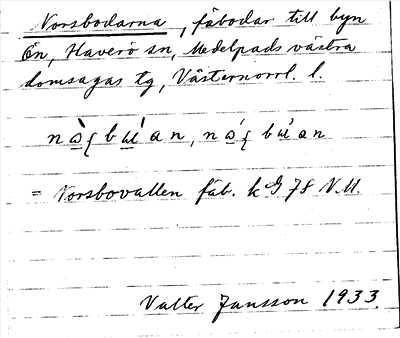 Norsbodarna, fäbodar till byn
Ön, Haverö sn, Medelpads västra
domsagas tg, Västernorrl. l.
= Norsbovallen fäb. k G 78 N.U.
Valter Jansson 1933.